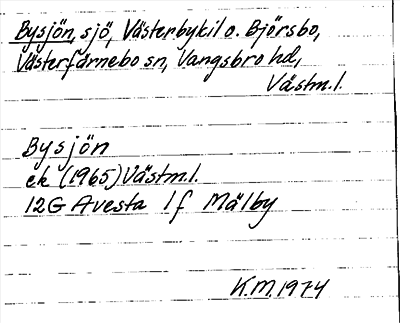 Bysjön, sjö, Västerbykil o. Björsbo,
Västerfärnebo sn, Vangsbro hd,
Västm.l.
Bysjön
ek (1965) Västm.l.
12G Avesta 1f Mälby
K.M. 1974